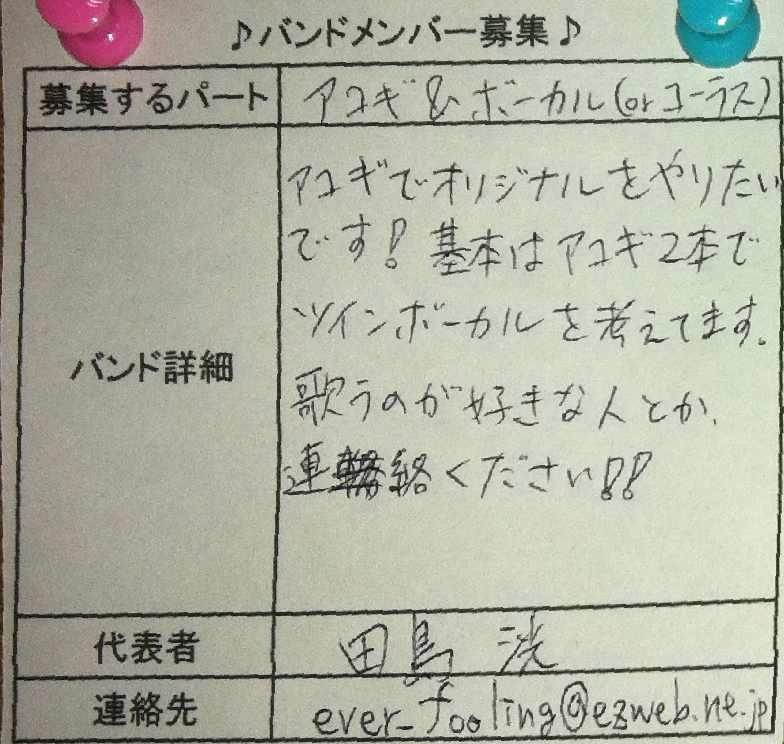 ♪バンドメンバー募集♪
募集するパート アコギ & ボーカル(or コーラス)
バンド詳細
アコギでオリジナルをやりたい
です! 基本はアコギ2本で
ツインボーカルを考えてます。
歌うのが好きな人とか、
連絡ください!!
代表者 田島 洸
連絡先 ever_fooling@ezweb.ne.jp